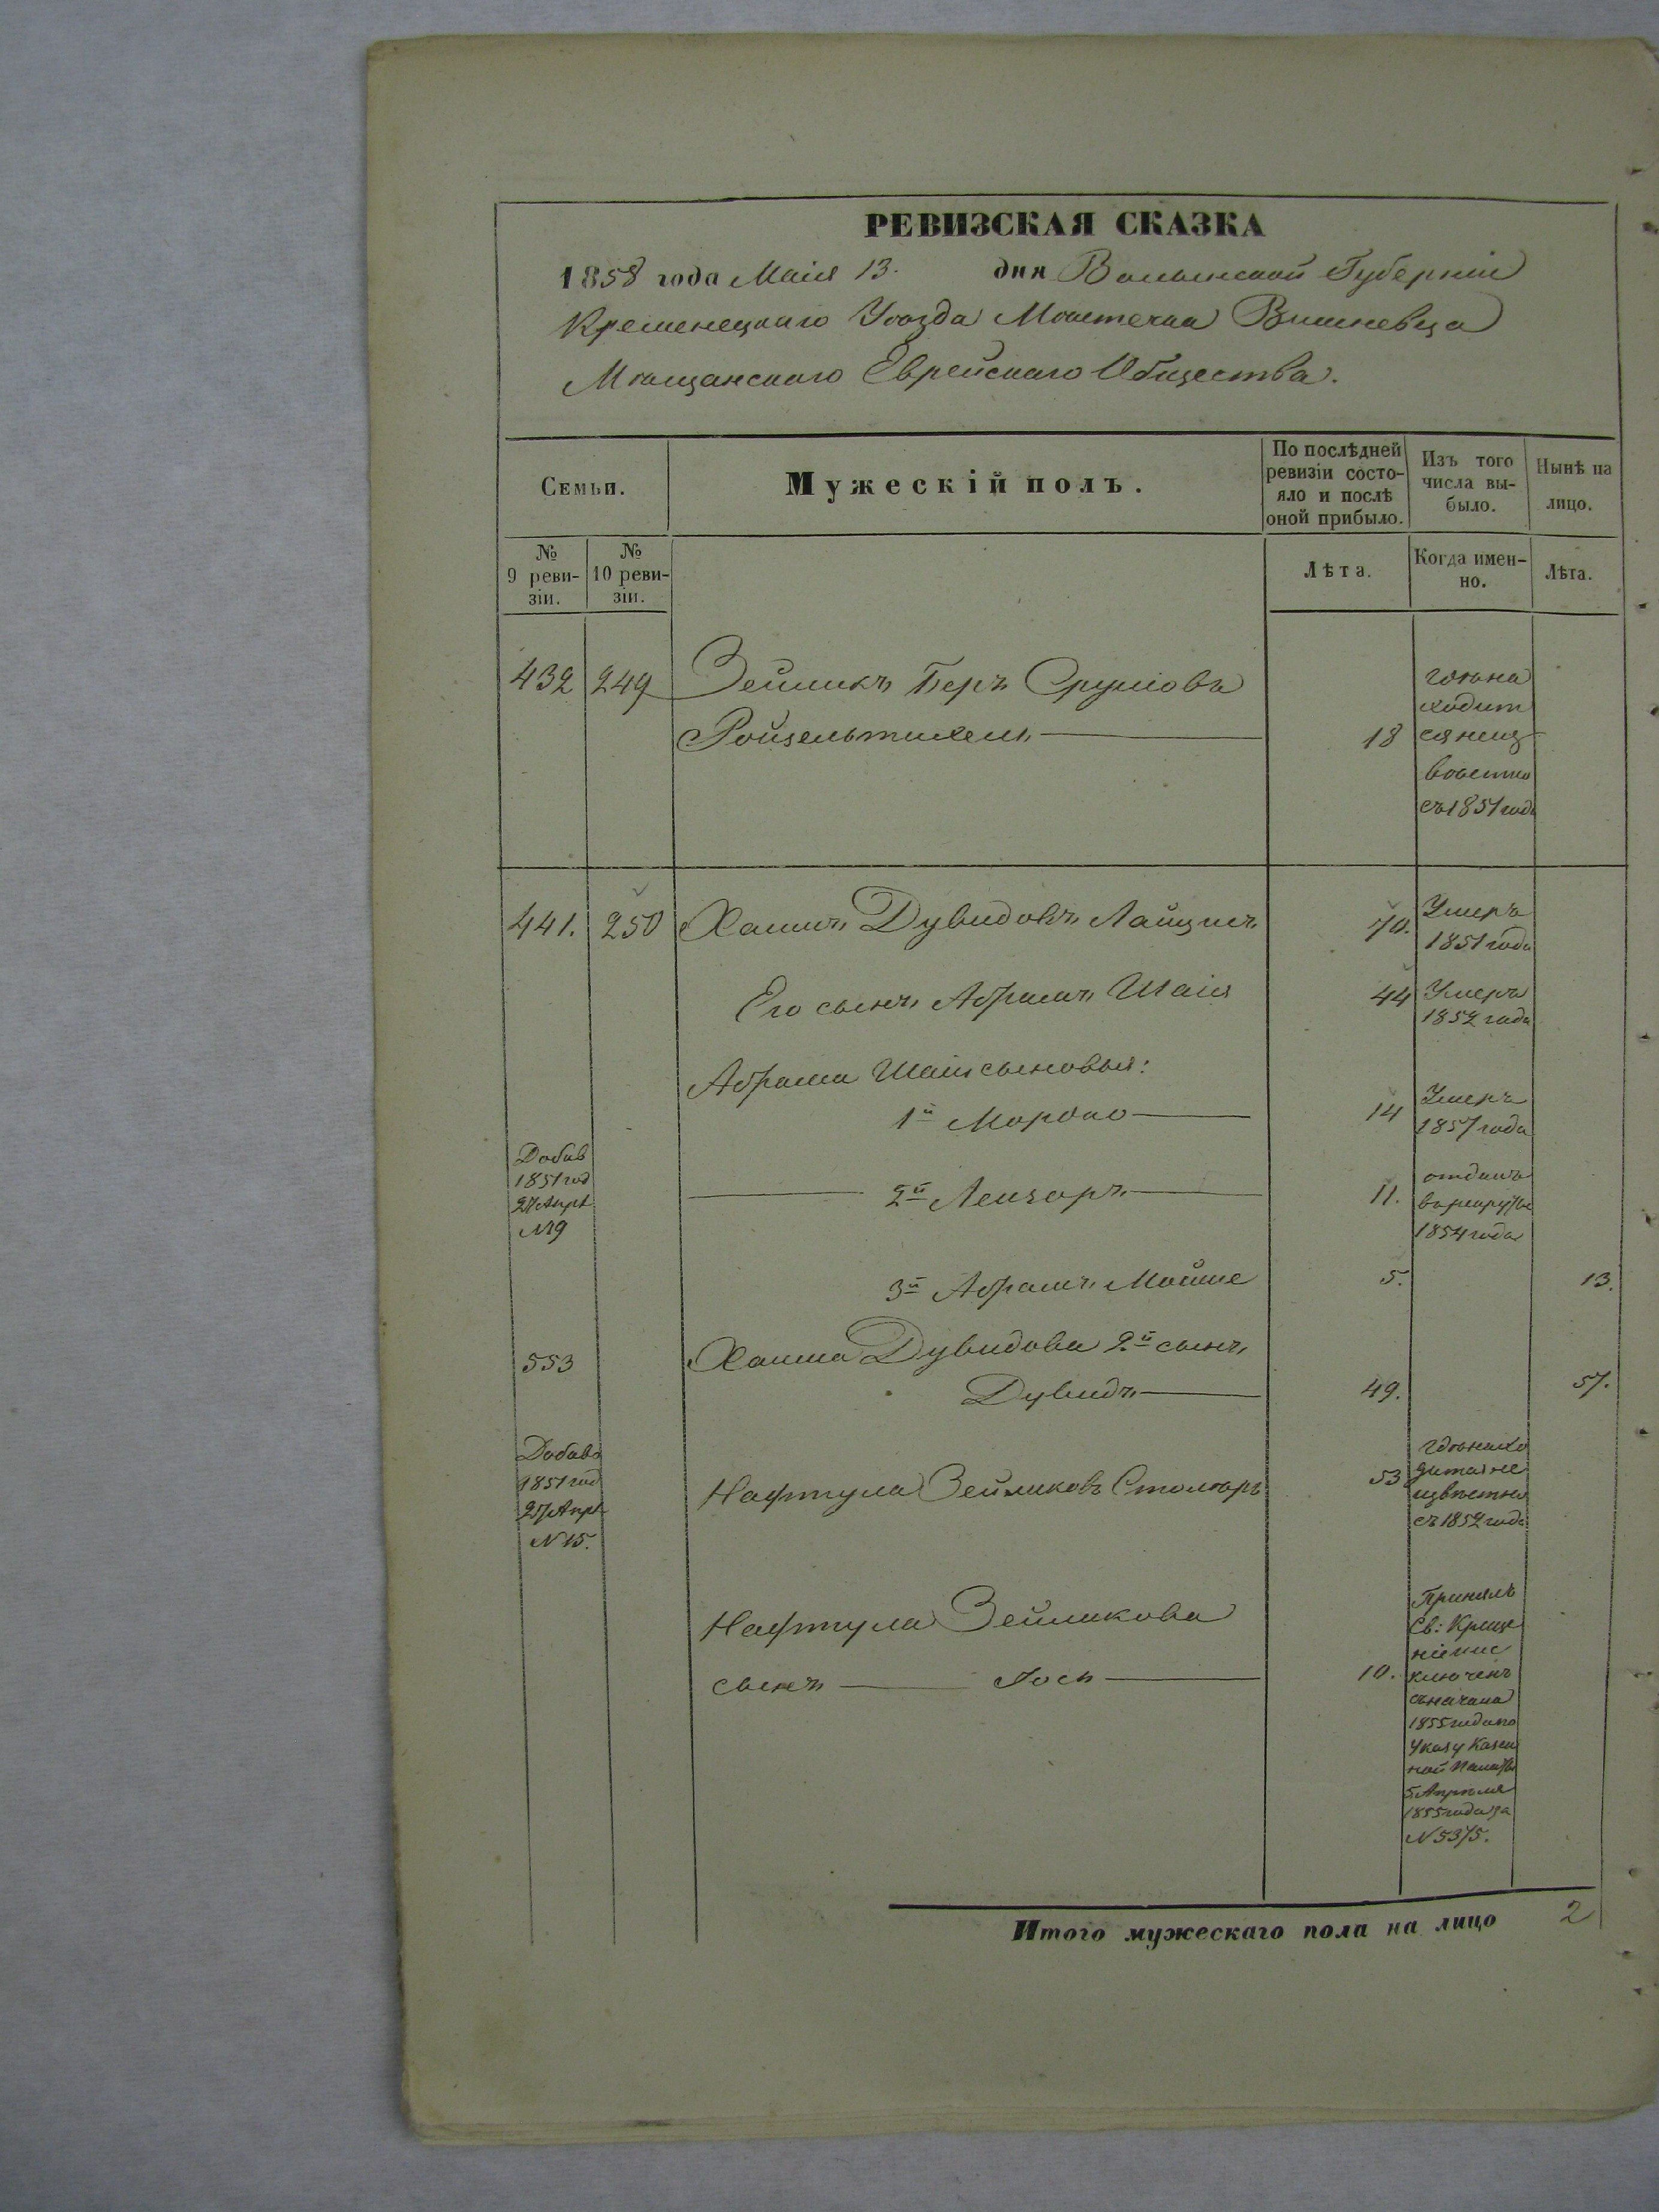 РЕВИЗСКАЯ СКАЗКА
1858 года Маія 13. дня Волынской Губерніи
Кременецкаго Уѣзда Мѣстечка Вишневца
Мѣщанскаго Еврейскаго Общества.
Семьи.
Мужескій полъ.
По послѣдней
ревизіи состо-
яло и послѣ
оной прибыло.
Изъ того
числа вы-
было.
Нынѣ на
лицо.
№
9 реви-
зіи.
№
10 реви-
зіи.
Лѣта.
Когда имен-
но.
Лѣта.
432 249 Зейликъ Беръ Сруліовъ
Ройзельтихелъ 18
гдѣ на
ходит
ся неиз
вѣстно
съ 1851 года
441. 250 Хаимъ Дувидовъ Лайщисъ 70. Умеръ
1851 года
Его сынъ Абрамъ Шаія 44 Умеръ
1852 года
Абрама Шаіи сыновья:
1й Мордко 14 Умеръ
1857 года
Добав
1851 год
27 Апрѣ
№9
2й Лейзоръ 11. отданъ
въ рекруты
1854 года
3й Абрамъ Мойше 5. 13.
553 Хаима Дувидова 2й сынъ
Дувидъ 49. 57.
Добавъ
1851 год
27 Апрѣ
№ 15.
Нафтула Зейликовъ Столяръ 53
гдѣ нахо
дится не
извѣстно
съ 1852 года
Нафтула Зейликова
сынъ Іось 10.
Принялъ
Св: Креще
ніе и ис
ключенъ
съ начала
1855 года по
Указу Казен
ной Палаты
5 Апрѣля
1855 года за
№ 5375.
Итого мужескаго пола на лицо 2